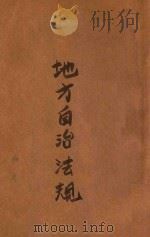 研狗
地方自治法规
www.mtoou.info